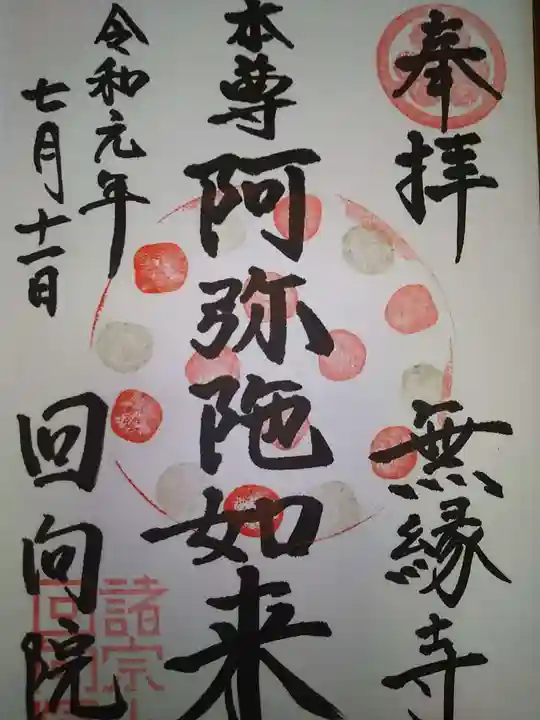 奉拝
無縁寺
本尊 阿弥陀如来
令和元年
七月十一日
回向院
諸宗
回向院